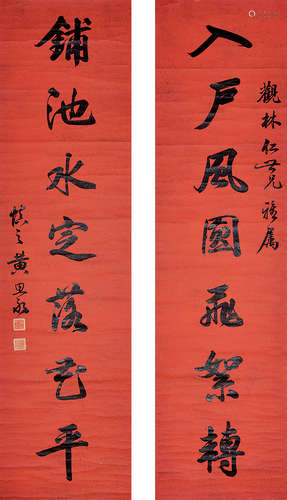 觀林仁世兄雅屬
入戶風圓飛絮轉
鋪池水定落花平
慎之黃思永